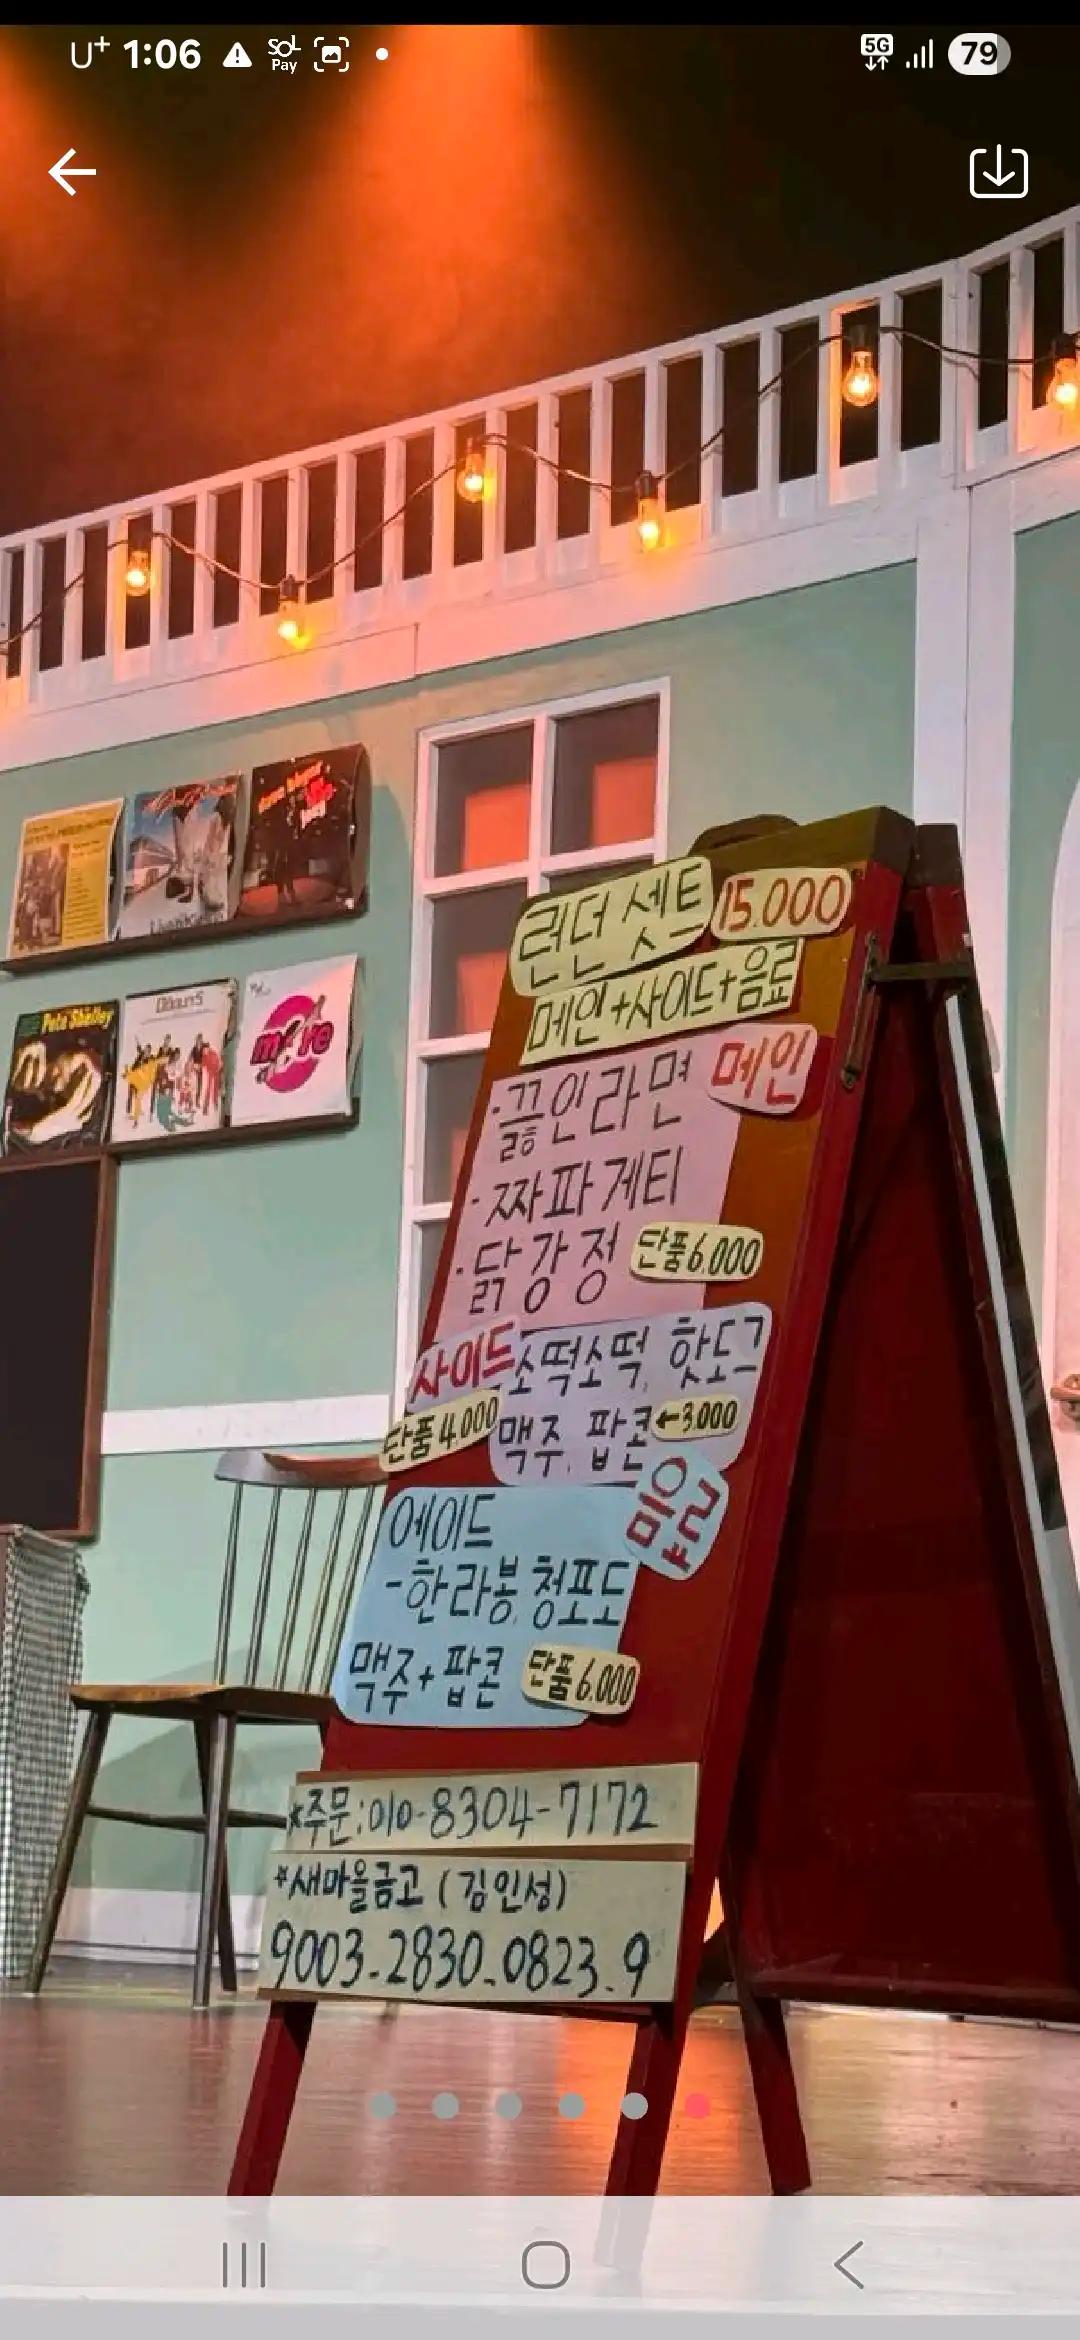 U+ 1:06
SOL Pay
5G
79
런던 셋트 15.000
메인+사이드+음료
메인
·끓인라면
·짜파게티
·닭강정 단품6.000
사이드 소떡소떡, 핫도그
단품4.000 맥주, 팝콘 ←3.000
음료
에이드
-한라봉, 청포도
맥주+팝콘 단품6.000
*주문:010-8304-7172
*새마을금고 (김인성)
9003-2830-0823-9
Pete Shelley
more